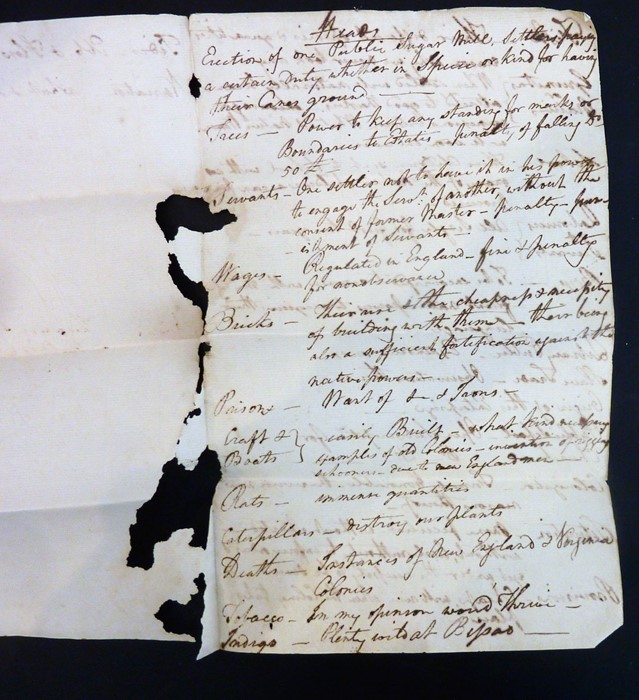 Heads
Erection of one Public Sugar Mill, settlers paying
a certain duty whether in Specie or kind for having
their Canes ground
Trees - Power to keep any standing for marks or
Boundaries to Estates - penalty of falling &c
50
Servants - One settler not to have it in his power
to engage the Serv.ts of another without the
consent of former Master - penalty - pun-
-ishment of Servants -
Wages - Regulated in England - fine & penalty
for nonobservance
Bricks - Their use & the cheapness & necessity
of building with them - their being
also a sufficient fortification against the
native powers -
Prison - Want of & Irons
Craft & } easily Built - what kind necessary
Boats examples of old Colonies - invention of
schooners - due to new Englandmen
Rats - immense quantities
Caterpillars - destroy our plants
Deaths - Instances of New England & Virginia
Colonies
Tobacco - In my opinion would thrive -
Indigo - Plenty wild at Bissao -